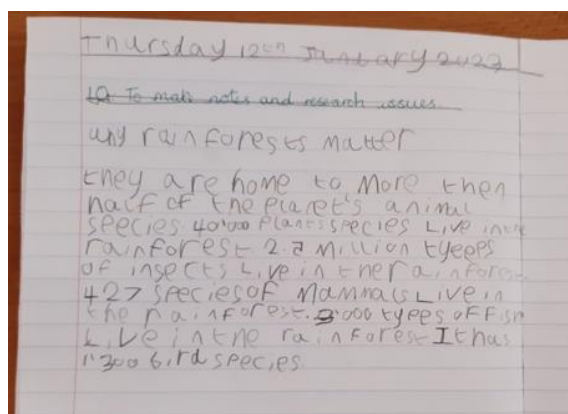 Thursday 12th January 2023
LO To make notes and research issues
why rainforests matter
they are home to more then
half of the planet's animal
species. 40'000 plants species Live in the
rainforest 2.5 Million tyeps
of insects Live in the rainforest
427 species of Mammals Live in
the rainforest. 3'000 tyees of Fish
Live in the rainforest It has
1'300 bird species.